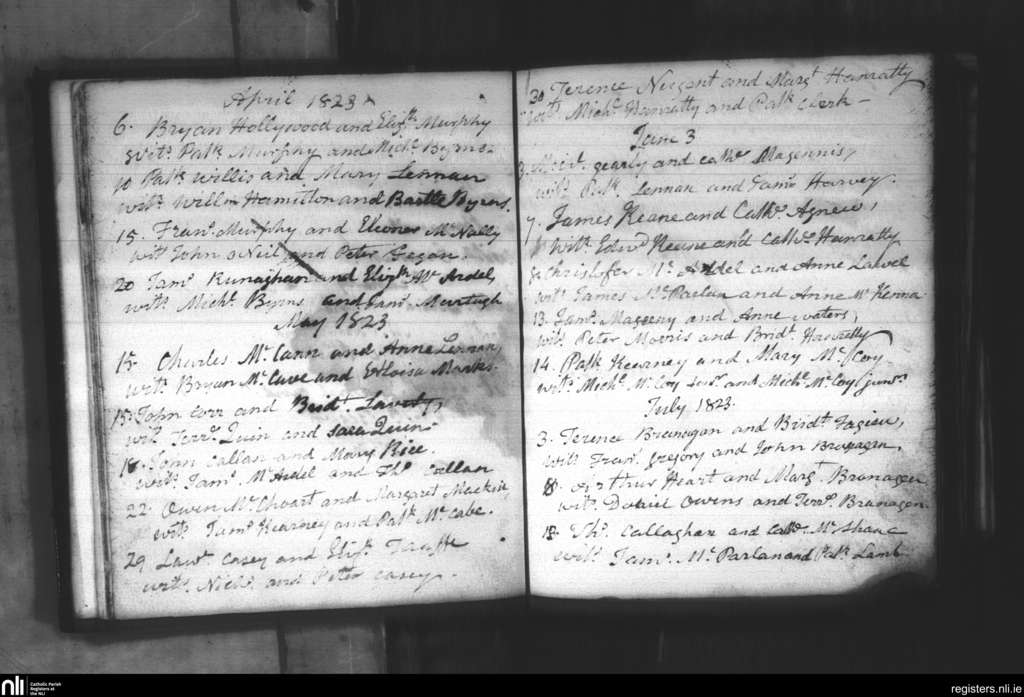 April 1823
6. Bryan Hollywood and Elizth Murphy
Witt. Patk Murphy and Michl Byrne
10 Patk Willis and Mary Lennan
witt. Willm Hamilton and Bartle Byrns.
15. Fran. Murphy and Eleonor McNally
wit John oNeil and Peter Fegan.
20 Jams Kunaghan and Elizth Mc Ardel,
witt. Michl. Byrns and Jams. Murtagh
May 1823
15. Charles Mc Cann and Anne Lennan,
witt. Bryan Mc Cave and Marks
15. John Corr and Bridt. Laverty,
wit. Terre. Quin and Sara Quin
18. John Callan and Mary Rice.
witt. Jams. McArdel and Ths. Callan
22. Owen Mc and Margaret Mackin,
witt. Jams. Kearney and Patk. Mc Cabe.
29 Lawe Casey and Elizth. Taaffe
witt. Nichs. and Peter Casey.
30 Terence Nugent and Margt Hanratty
witt. Michl. Hanratty and Patk Clerk –
June 3
3. gearly and Cathe Magennis,
witt. Patk. Lennan and Jams Harvey.
7. James Keane and Cathe. Agnew,
Witt. Edwd Keane and Cathe. Hanratty
8. Christofer Mc Ardel and Anne Lavel
witt. James McParlan and Anne McKenna
13. Jams. Mageeny and Anne Waters,
witt. Peter Morris and Bridt. Hanratty
14. Patk Kearney and Mary McCoy
witt. Michl. McCoy senr. and Michl McCoy junr.
July 1823.
3. Terence Branagan and Birdt. Fagan,
witt. Fran. Gregory and John Branagan,
8. Arthur Heart and Margt. Branagan
witt. Daniel Owens and Terre. Branagan.
18. Ths. Callaghan and Cathe. McShane
witt. Jams. McParlan and Patk Lamb
nli
Catholic Parish
Registers at
the NLI
registers.nli.ie